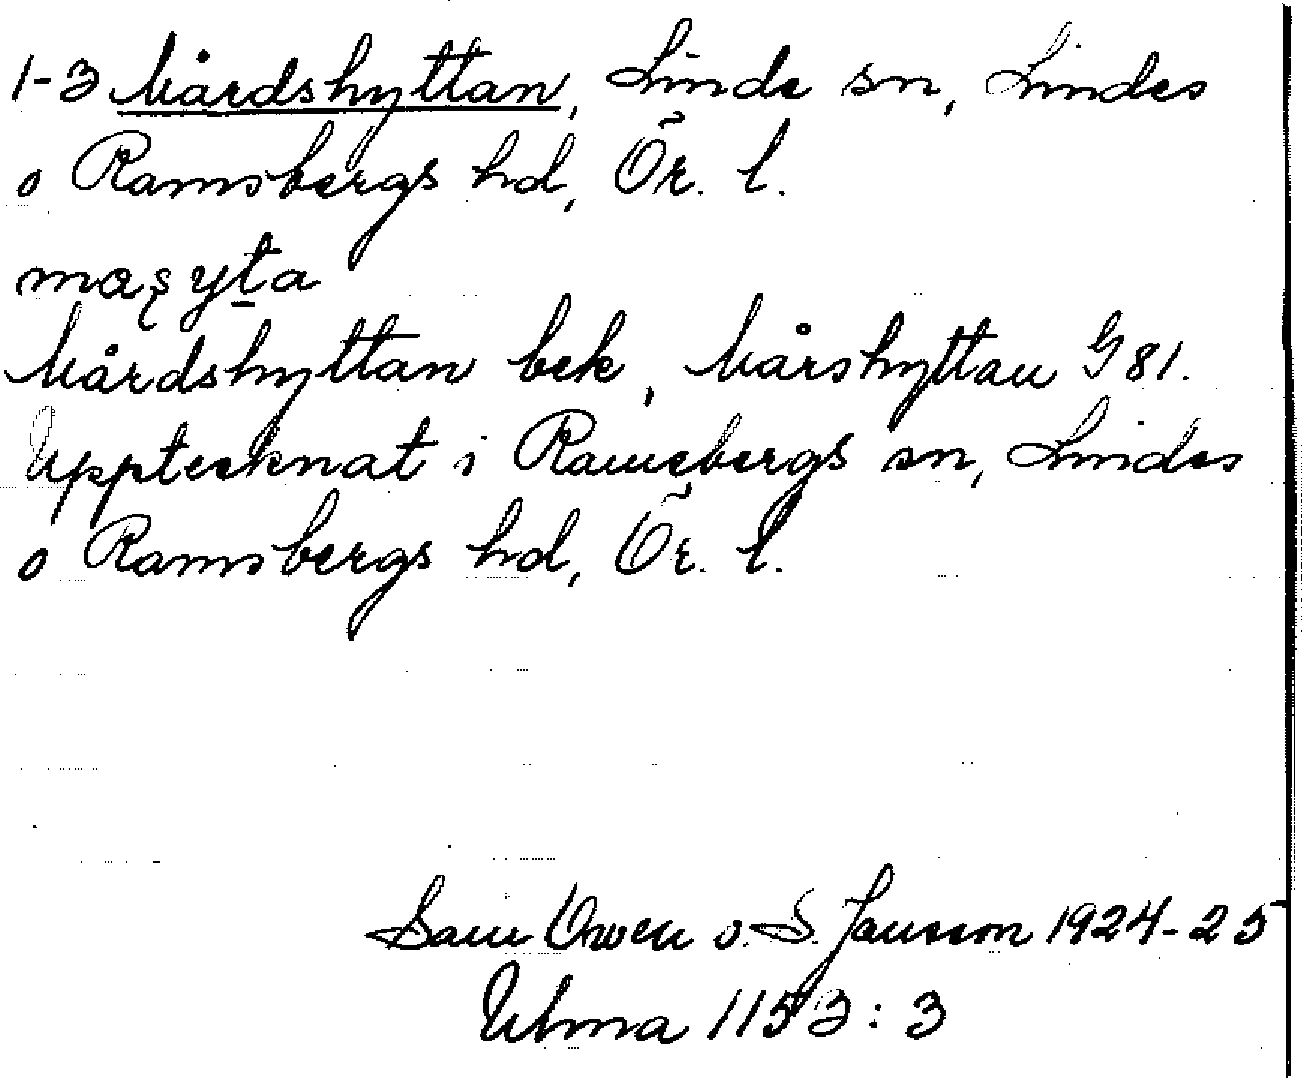 1-3 Mårdshyttan, Linde sn, Lindes
o Ramsbergs hd, Ör. l.
Mårdshyttan bek, Mårshyttan G 81.
Upptecknat i Ramsbergs sn, Lindes
o Ramsbergs hd, Ör. l.
Sam Owen o. S. Jansson 1924-25
Ulma 1153:3